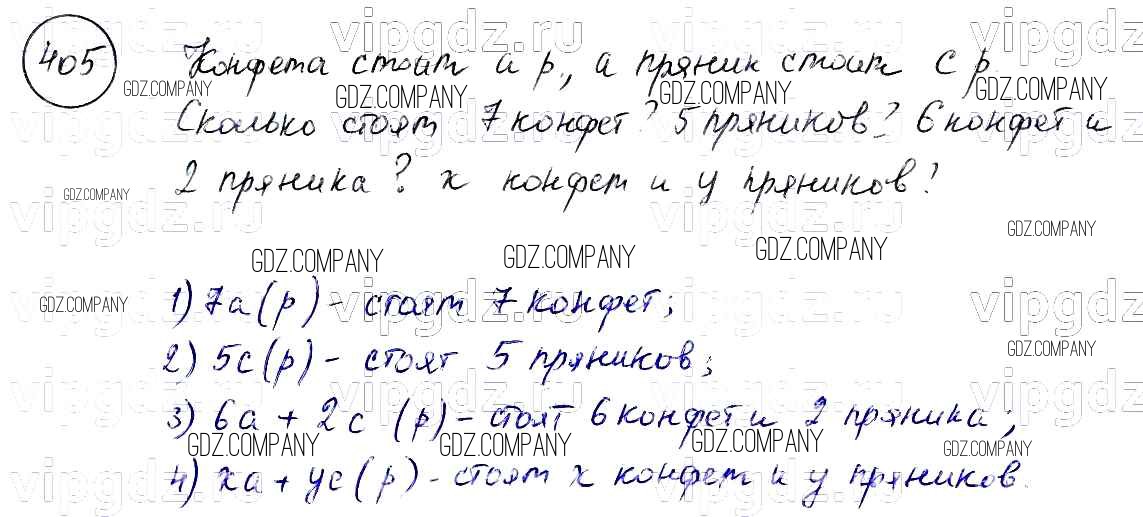 405
Конфета стоит а р., а пряник стоит с р.
Сколько стоят 7 конфет? 5 пряников? 6 конфет и
2 пряника? х конфет и у пряников?
1) 7а (р) - стоят 7 конфет;
2) 5с (р) - стоят 5 пряников;
3) 6а + 2с (р) - стоят 6 конфет и 2 пряника;
4) ха + ус (р) - стоят х конфет и у пряников.
vipgdz.ru
GDZ.COMPANY